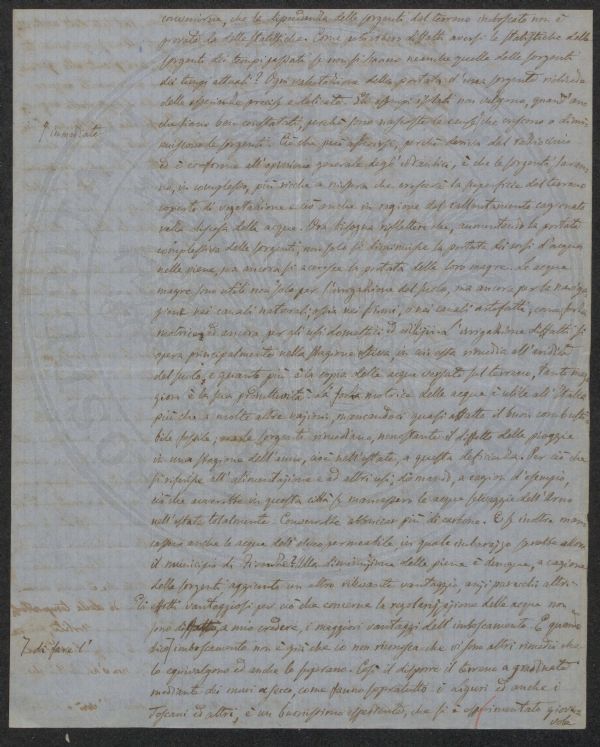 convenirne, che la dipendenza delle sorgenti dal terreno imboscato non è
provata da delle statistiche. Come potrebbero difatti aversi le statistiche delle
sorgenti dei tempi passati se non si hanno neanche quelle delle sorgenti
dei tempi attuali? Ogni valutazione della portata d'una sorgente richiede
delle esperienze precise e delicate. Gli esempi isolati non valgono, quand'an
che siano ben constatati, perchè sono nascoste le cause che creano o dimi
nuiscono le sorgenti. Ciò che può asserirsi, perchè deriva dal raziocinio
ed è conforme all'opinione generale degl'idraulici, è che le sorgenti saran
no, in complesso, più ricche a misura che crescerà la superficie del terreno
coperto di vegetazione e ciò anche in ragione del rallentamento cagionato
nella discesa delle acque. Ora bisogna riflettere che, aumentando la portata
complessiva delle sorgenti, non solo si diminuisce la portata dei corsi d'acqua
nelle piene, ma ancora si accresce la portata delle loro magre. Le acque
magre sono utili non solo per l'irrigazione del suolo, ma ancora per la naviga
zione nei canali naturali, ossia nei fiumi, o nei canali artefatti, come forza
motrice, ed ancora per gli usi domestici ed edilizi. L'irrigazione difatti si
opera principalmente nella stagione estiva in cui essa rimedia all'aridità
del suolo, e quanto più è la copia delle acque versate sul terreno, tanto mag
giore è la sua produttività. La forza motrice delle acque è utile all'Italia
più che a molte altre nazioni, mancandoci quasi affatto il buon combusti
bile fossile, ma le sorgenti rimediano, nonostante il difetto delle piogge
in una stagione dell'anno, cioè nell'estate, a questa deficienza. Per ciò che
si riferisce all'alimentazione e ad altri usi domando, a cagion d'esempio,
ciò che avverrebbe in questa città se mancassero le acque selvagge dell'Arno
nell'estate totalmente. Converrebbe abbruciar più di carbone. E se inoltre man
cassero anche le acque dell'alveo permeabile in quale imbarazzo sarebbe allora
il municipio di Firenze? Alla diminuzione delle piene è dunque, a cagione
delle sorgenti aggiunto un altro rilevante vantaggio, anzi parecchi altri.
Gli effetti vantaggiosi per ciò che concerne la regolarizzazione delle acque non
sono a mio credere, i maggiori vantaggi dell'imboscamento. E quando
dico imboscamento non è già che io non riconosca che vi sono altri rimedii che
lo equivalgono ed anche lo superano. Così il disporre il terreno a gradinate
mediante dei muri a secco, come fanno soprattutto i liguri ed anche i
Toscani ed altri, è un buonissimo espediente, che si è esperimentato giove-
vole
immediate
di fare l'